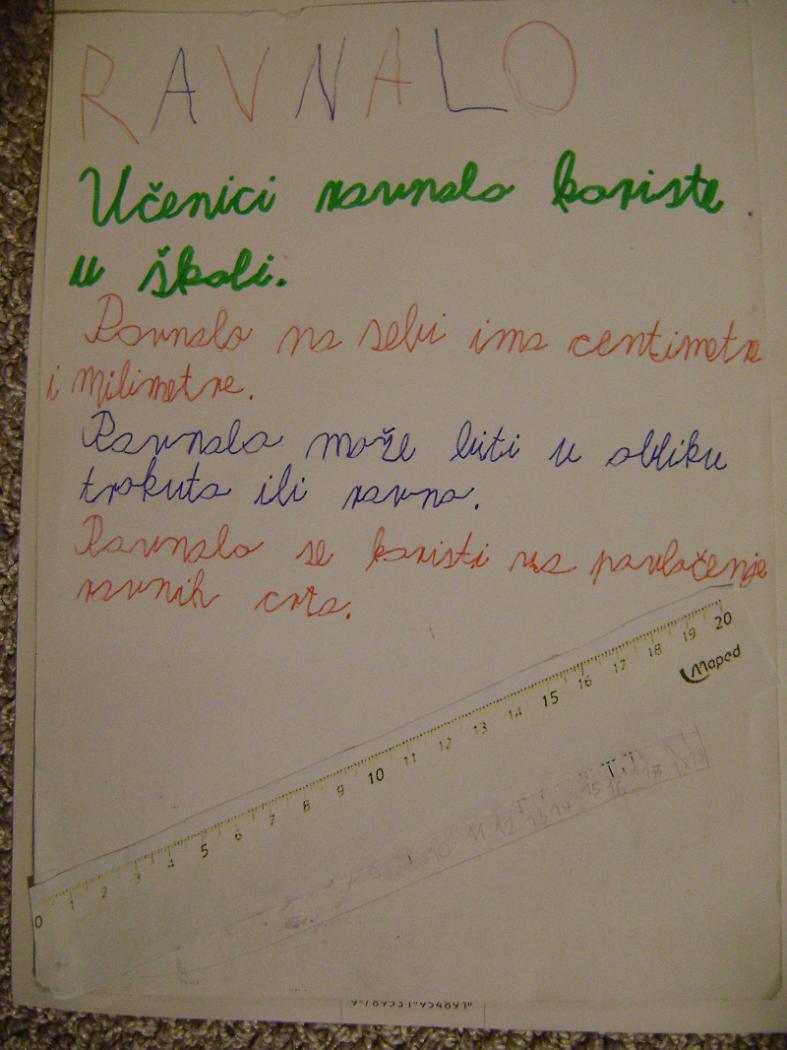 RAVNALO
Učenici ravnalo koriste
u školi.
Ravnalo na sebi ima centimetre
i milimetre.
Ravnalo može biti u obliku
trokuta ili ravno.
Ravnalo se koristi za povlačenje
ravnih crta.
0 1 2 3 4 5 6 7 8 9 10 11 12 13 14 15 16 17 18 19 20
Maped
10 11 12 13 14 15 16 18
9 789531 954891